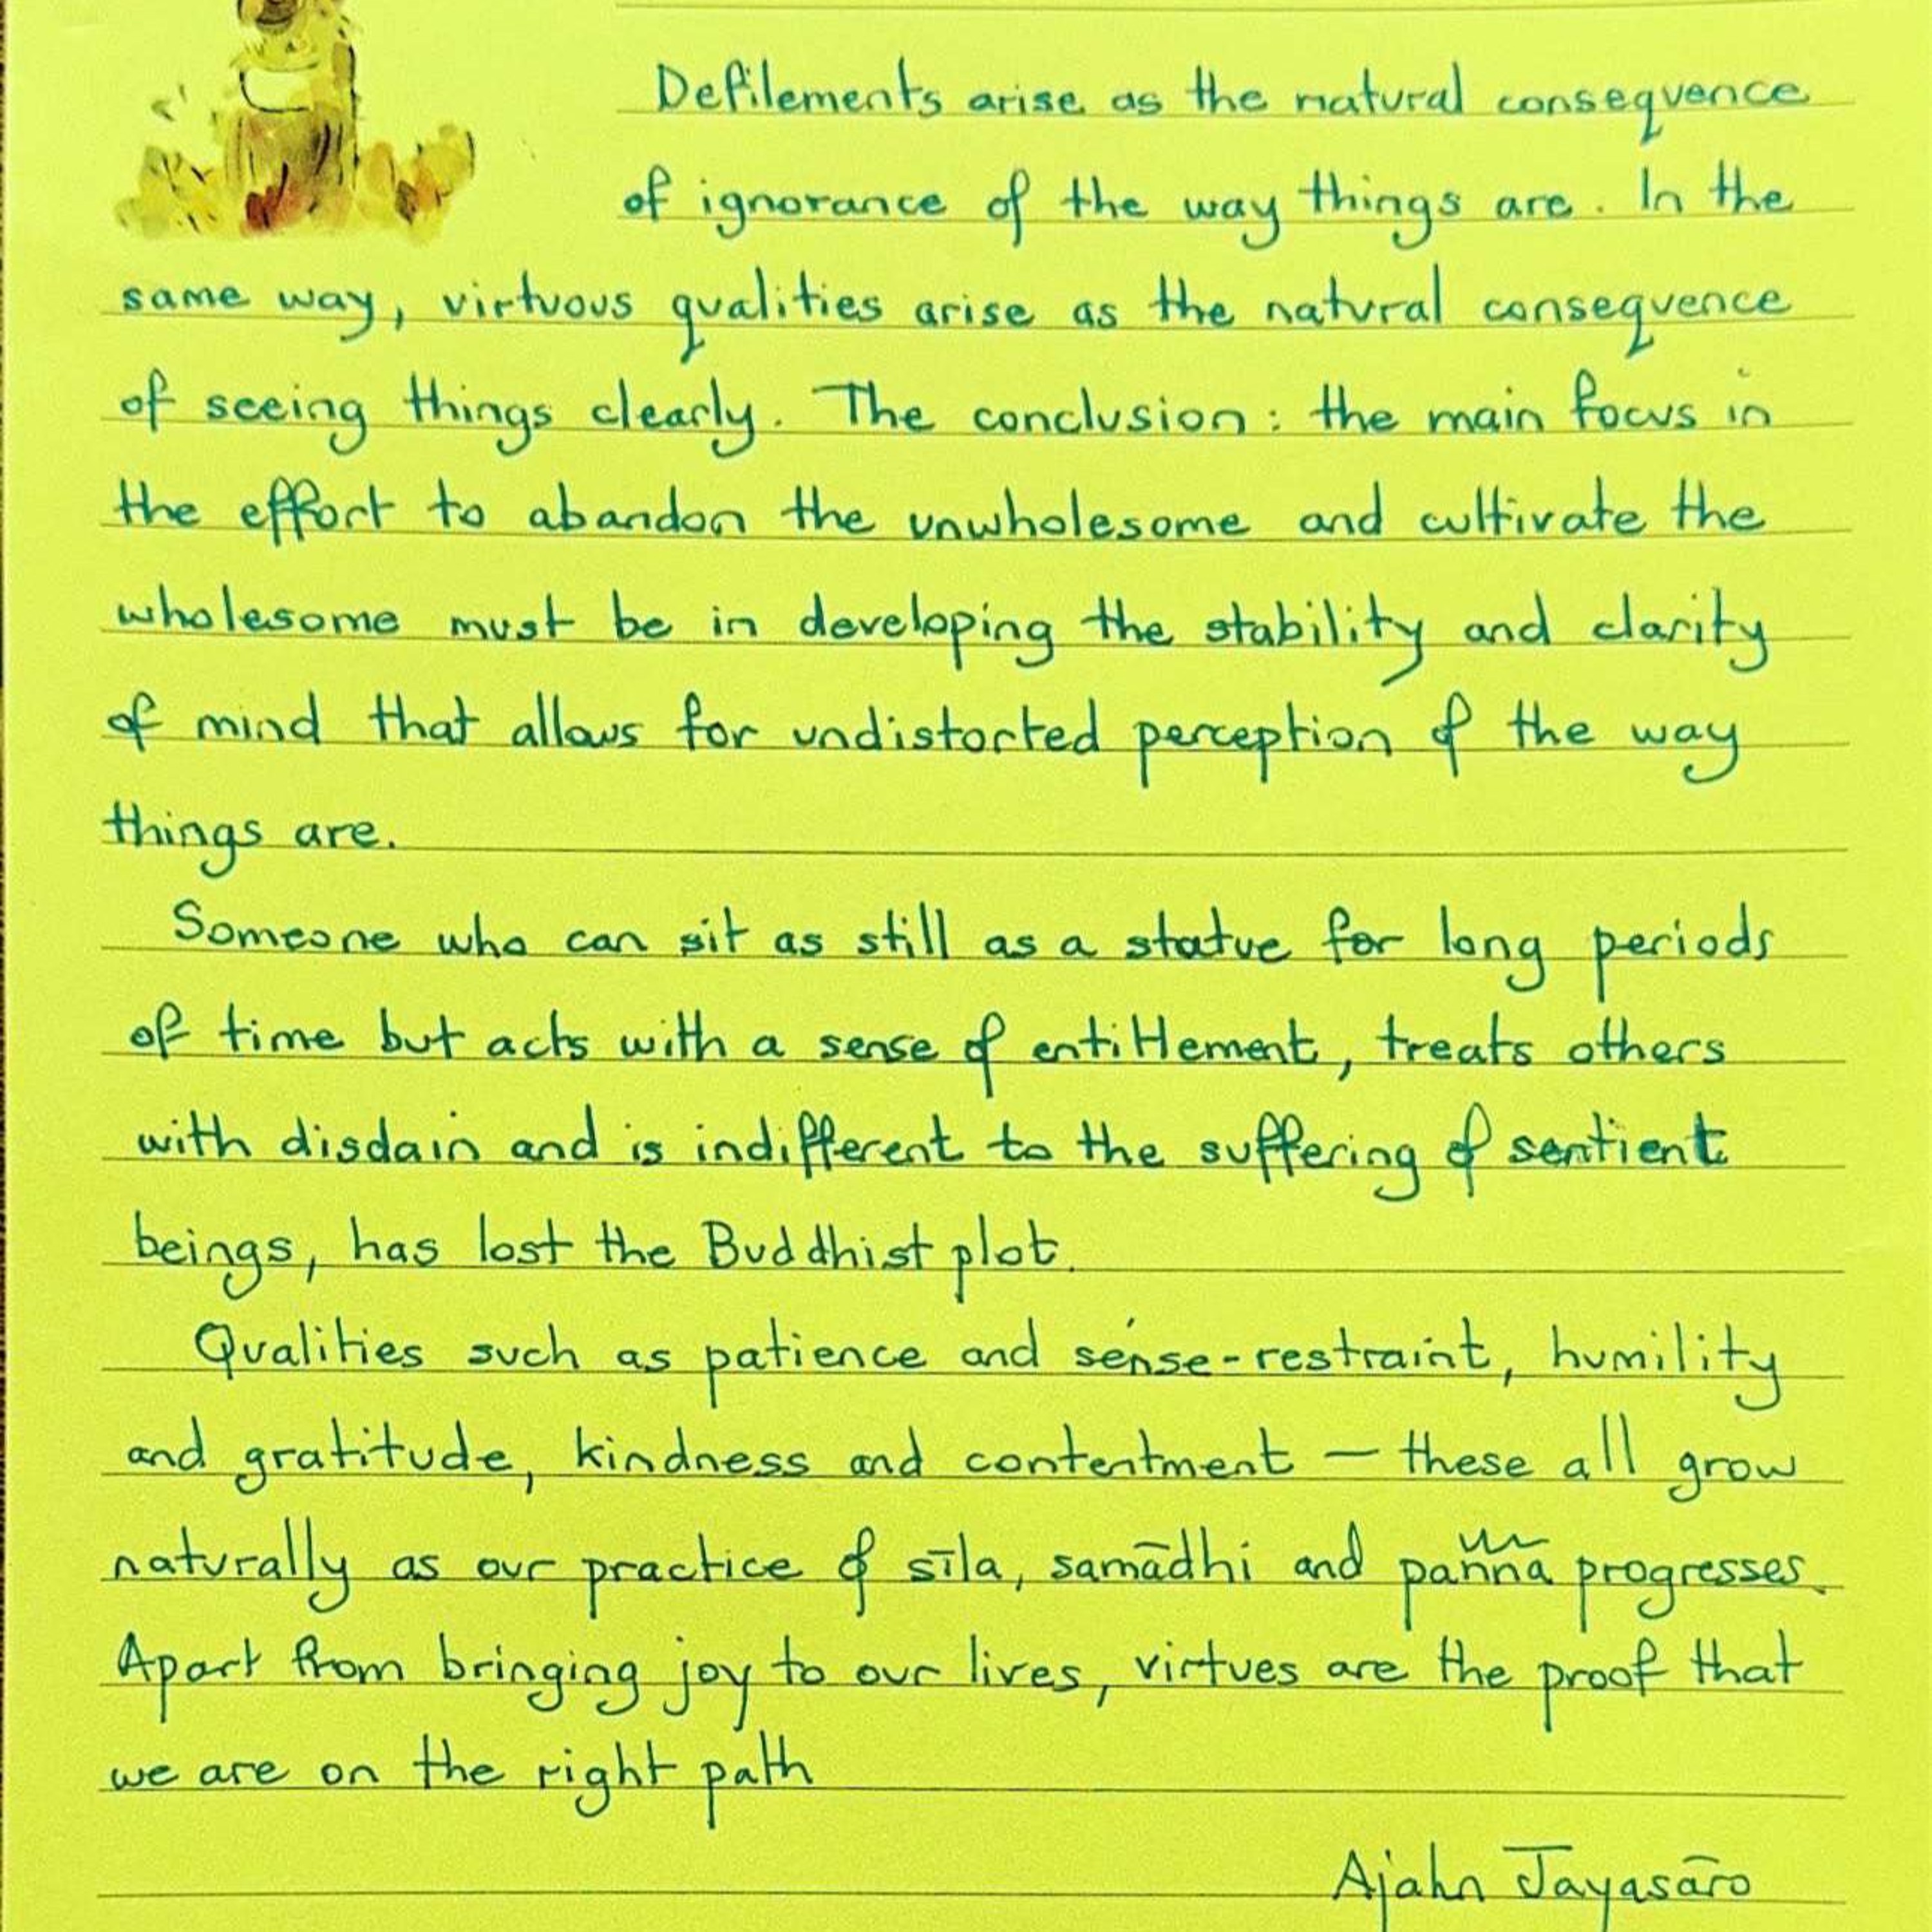 Defilements arise as the natural consequence
of ignorance of the way things are. In the
same way, virtuous qualities arise as the natural consequence
of seeing things clearly. The conclusion: the main focus in
the effort to abandon the unwholesome and cultivate the
wholesome must be in developing the stability and clarity
of mind that allows for undistorted perception of the way
things are.
Someone who can sit as still as a statue for long periods
of time but acts with a sense of entitlement, treats others
with disdain and is indifferent to the suffering of sentient
beings, has lost the Buddhist plot.
Qualities such as patience and sense-restraint, humility
and gratitude, kindness and contentment – these all grow
naturally as our practice of sīla, samādhi and paññā progresses.
Apart from bringing joy to our lives, virtues are the proof that
we are on the right path
Ajahn Jayasāro